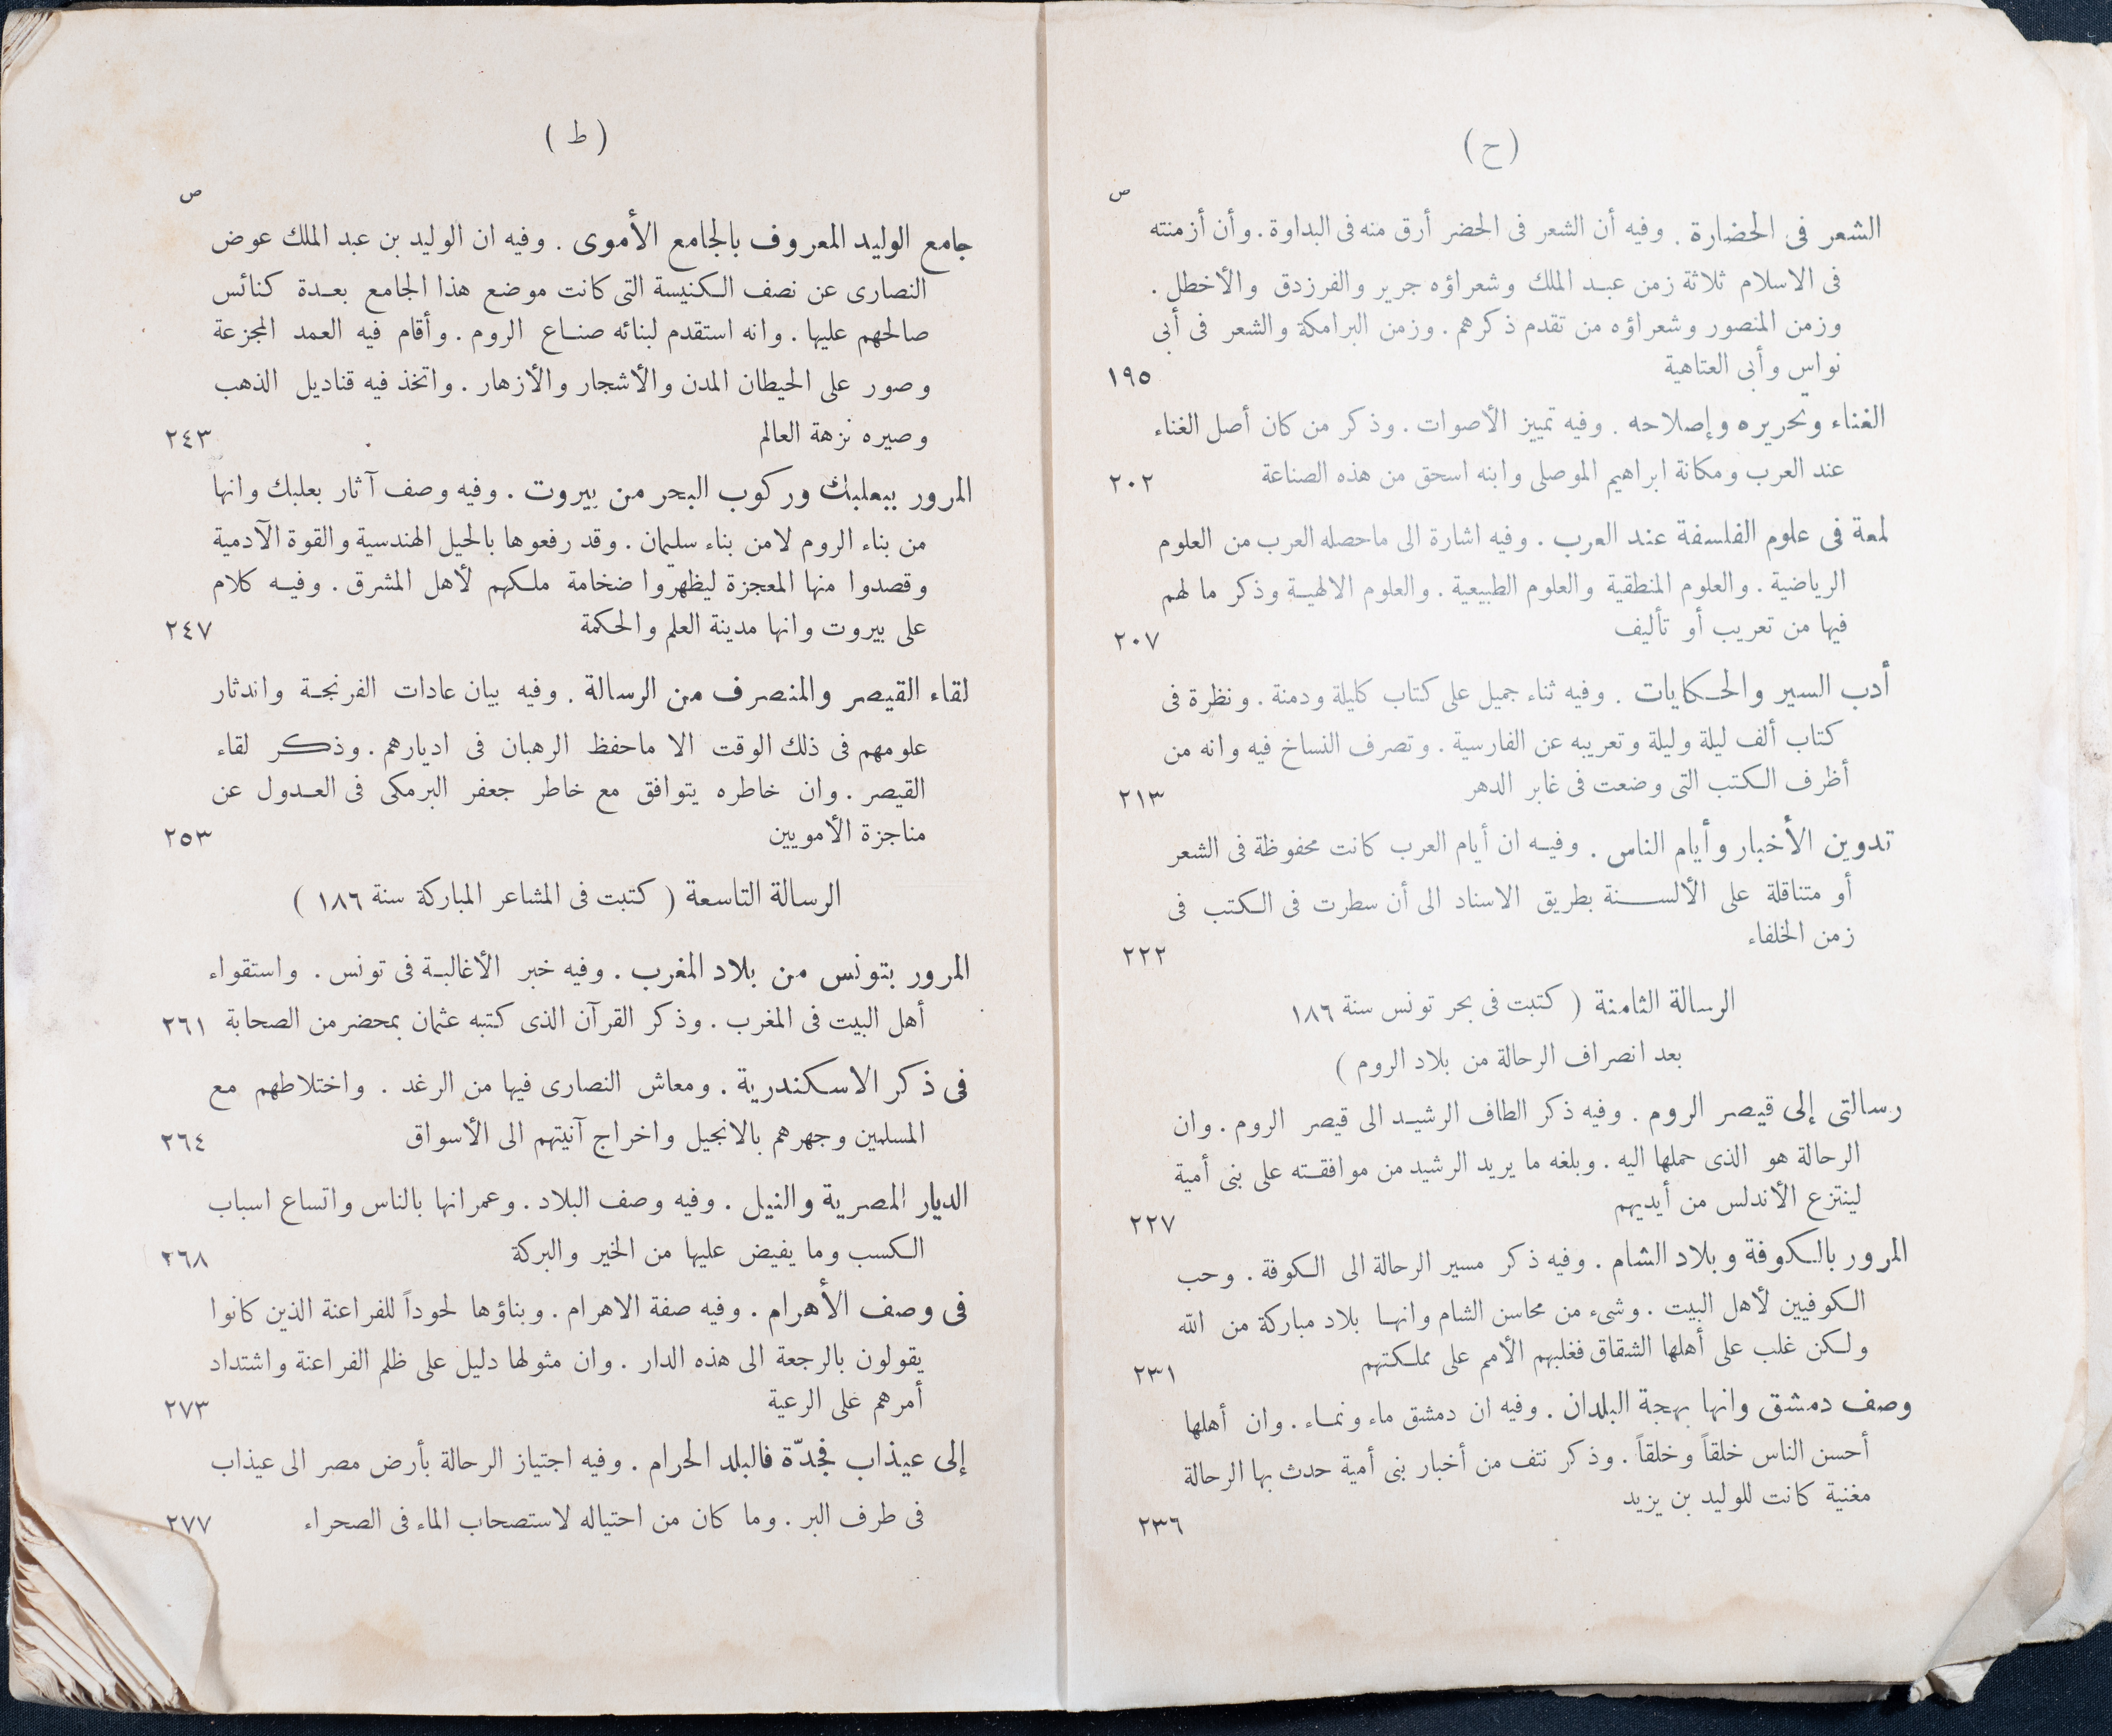 (ح)
ص
الشعر فى الحضارة . وفيه أن الشعر فى الحضر أرق منه فى البداوة . وأن أزمنته
فى الاسلام ثلاثة زمن عبد الملك وشعراؤه جرير والفرزدق والأخطل .
وزمن المنصور وشعراؤه من تقدم ذكرهم . وزمن البرامكة والشعر فى أبى
نواس وأبى العتاهية ١٩٥
الغناء وتحريره وإصلاحه . وفيه تمييز الأصوات . وذكر من كان أصل الغناء
عند العرب ومكانة ابراهيم الموصلى وابنه اسحق من هذه الصناعة ٢٠٢
لمعة فى علوم الفلسفة عند العرب . وفيه اشارة الى ماحصله العرب من العلوم
الرياضية . والعلوم المنطقية والعلوم الطبيعية . والعلوم الالهية وذكر ما لهم
فيها من تعريب أو تأليف ٢٠٧
أدب السير والحكايات . وفيه ثناء جميل على كتاب كليلة ودمنة . ونظرة فى
كتاب ألف ليلة وليلة وتعريبه عن الفارسية . وتصرف النساخ فيه وانه من
أظرف الكتب التى وضعت فى غابر الدهر ٢١٣
تدوين الأخبار وأيام الناس . وفيه ان أيام العرب كانت محفوظة فى الشعر
أو متناقلة على الألسنة بطريق الاسناد الى أن سطرت فى الكتب فى
زمن الخلفاء ٢٢٢
الرسالة الثامنة ( كتبت فى بحر تونس سنة ١٨٦
بعد انصراف الرحالة من بلاد الروم )
رسالتى إلى قيصر الروم . وفيه ذكر الطاف الرشيد الى قيصر الروم . وان
الرحالة هو الذى حملها اليه . وبلغه ما يريد الرشيد من موافقته على بنى أمية
لينتزع الأندلس من أيديهم ٢٢٧
المرور بالكوفة وبلاد الشام . وفيه ذكر مسير الرحالة الى الكوفة . وحب
الكوفيين لأهل البيت . وشىء من محاسن الشام وانها بلاد مباركة من الله
ولكن غلب على أهلها الشقاق فغلبهم الأمم على مملكتهم ٢٣١
وصف دمشق وانها بهجة البلدان . وفيه ان دمشق ماء ونماء . وان أهلها
أحسن الناس خلقاً وخلقاً . وذكر نتف من أخبار بنى أمية حدث بها الرحالة
مغنية كانت للوليد بن يزيد ٢٣٦
(ط)
ص
جامع الوليد المعروف بالجامع الأموى . وفيه ان الوليد بن عبد الملك عوض
النصارى عن نصف الكنيسة التى كانت موضع هذا الجامع بعدة كنائس
صالحهم عليها . وانه استقدم لبنائه صناع الروم . وأقام فيه العمد المجزعة
وصور على الحيطان المدن والأشجار والأزهار . واتخذ فيه قناديل الذهب
وصيره نزهة العالم ٢٤٣
المرور ببعلبك وركوب البحر من بيروت . وفيه وصف آثار بعلبك وانها
من بناء الروم لامن بناء سليمان . وقد رفعوها بالحيل الهندسية والقوة الآدمية
وقصدوا منها المعجزة ليظهروا ضخامة ملكهم لأهل المشرق . وفيه كلام
على بيروت وانها مدينة العلم والحكمة ٢٤٧
لقاء القيصر والمنصرف من الرسالة . وفيه بيان عادات الفرنجة واندثار
علومهم فى ذلك الوقت الا ماحفظ الرهبان فى اديارهم . وذكر لقاء
القيصر . وان خاطره يتوافق مع خاطر جعفر البرمكى فى العدول عن
مناجزة الأمويين ٢٥٣
الرسالة التاسعة ( كتبت فى المشاعر المباركة سنة ١٨٦ )
المرور بتونس من بلاد المغرب . وفيه خبر الأغالبة فى تونس . واستقواء
أهل البيت فى المغرب . وذكر القرآن الذى كتبه عثمان بمحضر من الصحابة ٢٦١
فى ذكر الاسكندرية . ومعاش النصارى فيها من الرغد . واختلاطهم مع
المسلمين وجهرهم بالانجيل واخراج آنيتهم الى الأسواق ٢٦٤
الديار المصرية والنيل . وفيه وصف البلاد . وعمرانها بالناس واتساع اسباب
الكسب وما يفيض عليها من الخير والبركة ٢٦٨
فى وصف الأهرام . وفيه صفة الاهرام . وبناؤها لحوداً للفراعنة الذين كانوا
يقولون بالرجعة الى هذه الدار . وان مثولها دليل على ظلم الفراعنة واشتداد
أمرهم على الرعية ٢٧٣
إلى عيذاب فجدّة فالبلد الحرام . وفيه اجتياز الرحالة بأرض مصر الى عيذاب
فى طرف البر . وما كان من احتياله لاستصحاب الماء فى الصحراء ٢٧٧